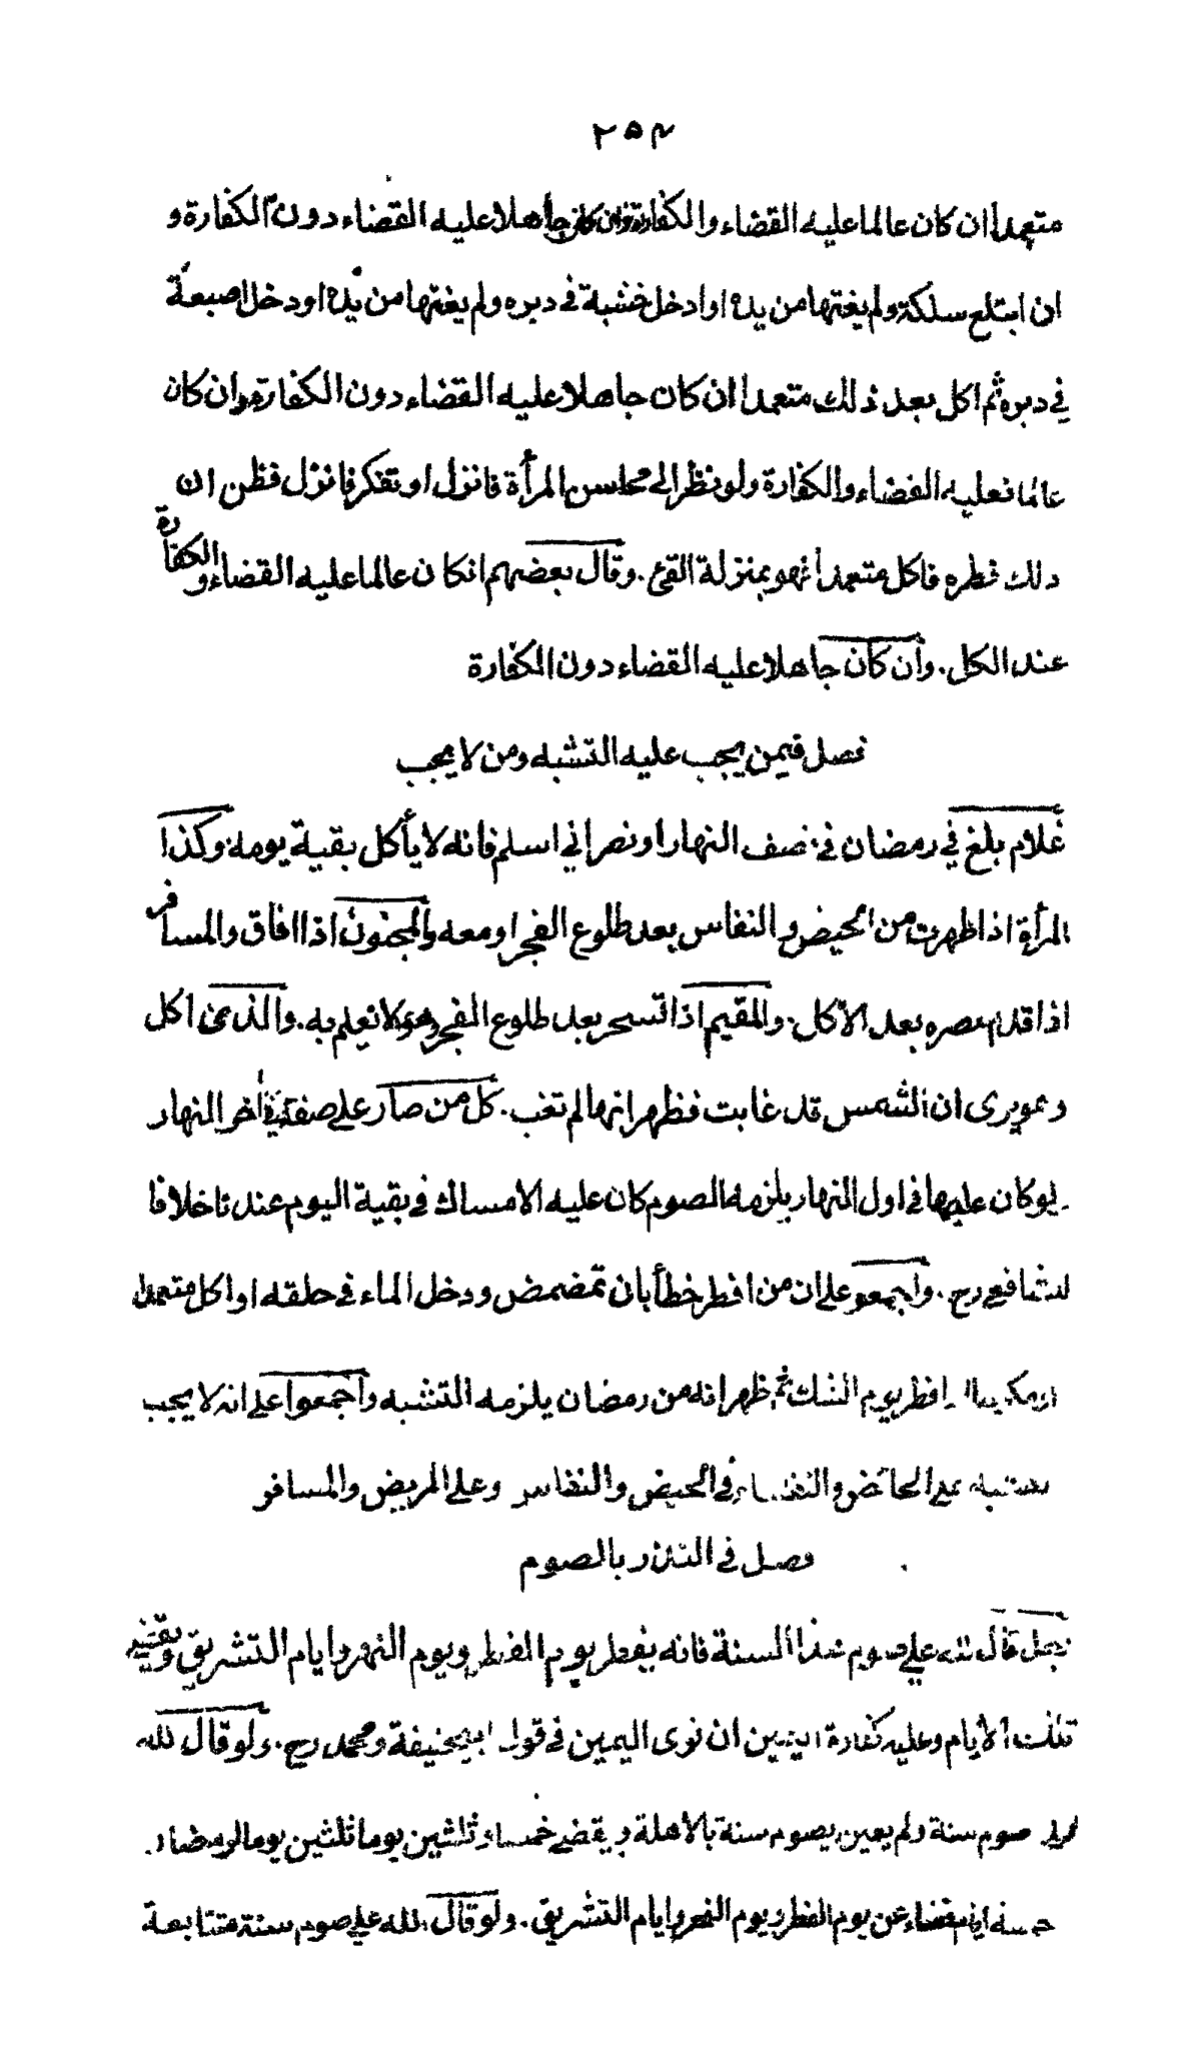 ٢٥٤
متعمدا ان كان عالما عليه القضاء والكفارة وان كان جاهلا عليه القضاء دون الكفارة و
ان ابتلع سلكة ولم يغتها من يده او ادخل خشبة في دبره ولم يغتها من يده او دخل اصبعة
في دبره ثم اكل بعد ذلك متعمدا ان كان جاهلا عليه القضاء دون الكفارة وان كان
عالما فعليه القضاء والكفارة ولو نظر الى محاسن المرأة فانزل او تفكر فانزل فظن ان
ذلك فطره فاكل متعمدا فهو بمنزلة القئ . وقال بعضهم انكان عالما عليه القضاء والكفارة
عند الكل . وان كان جاهلا عليه القضاء دون الكفارة
فصل فيمن يجب عليه التشبه ومن لا يجب
غلام بلغ في رمضان في نصف النهار او نصراني اسلم فانه لا يأكل بقية يومه وكذا
المرأة اذا طهرت من الحيض والنفاس بعد طلوع الفجر او معه والمجنون اذا افاق والمسافر
اذا قدم مصره بعد الاكل . والمقيم اذا تسحر بعد طلوع الفجر وهو لا يعلم به . والذي اكل
وهو يرى ان الشمس قد غابت فظهر انها لم تغب . كل من صار على صفة في اخر النهار
لو كان عليها في اول النهار يلزمه الصوم كان عليه الامساك في بقية اليوم عندنا خلافا
للشافعي رح . واجمعوا على ان من افطر خطأ بان تمضمض ودخل الماء في حلقه او اكل متعمدا
او مكرها او افطر يوم الشك ثم ظهر انه من رمضان يلزمه التشبه واجمعوا على انه لا يجب
التشبه على الحائض والنفساء في الحيض والنفاس وعلى المريض والمسافر
فصل في النذر بالصوم
رجل قال لله علي صوم هذه السنة فانه يفطر يوم الفطر ويوم النحر وايام التشريق ويقضي
تلك الايام وعليه كفارة اليمين ان نوى اليمين في قول ابيحنيفة ومحمد رح . ولو قال لله
علي صوم سنة ولم يعين يصوم سنة بالاهلة ويقضي خمسا وثلثين يوما ثلثين يوما لرمضان
خمسة ايام قضاء عن يوم الفطر ويوم النحر وايام التشريق . ولو قال لله علي صوم سنة متتابعة